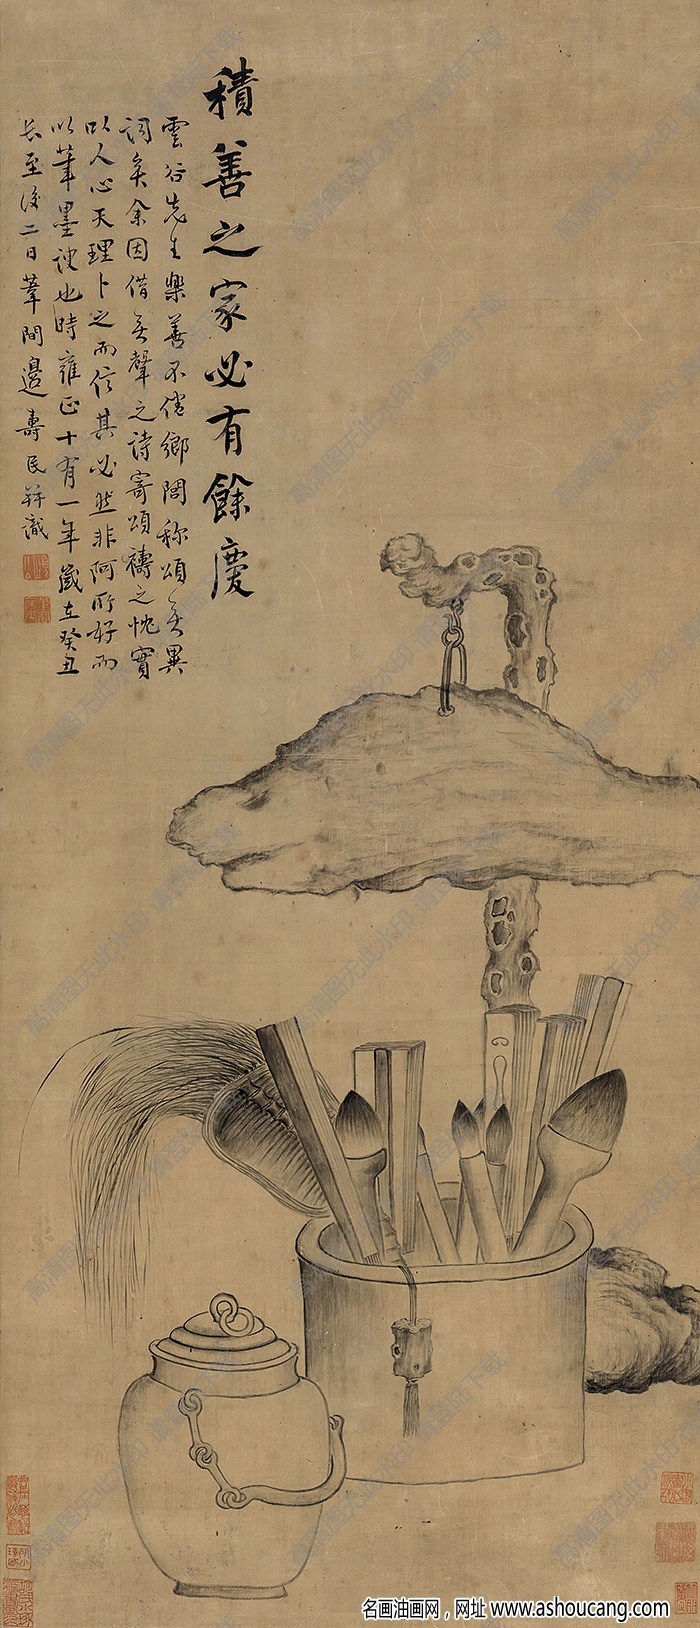 積善之家必有餘慶
雲谷先生樂善不倦鄉閭称頌無異
詞矣余因借無聲之詩寄頌禱之忱實
以人心天理卜之而信其必然非阿所好而
以筆墨諛也時雍正十有一年歲在癸丑
长至後二日葦間邊壽民并識
高清图无此水印·请登陆下载
名画油画网，网址 www.ashoucang.com